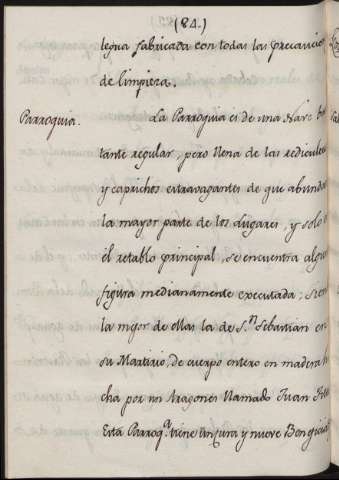 (84.)
legua fabricada con todas las precaucio
de limpieza.
Parroquia. La Parroquia es de una Nave bas
tante regular, pero llena de las rediculez
y caprichos extravagantes de que abunda
la mayor parte de los Lugares, y solo e
el retablo principal se encuentra algun
figura medianamente executada; sien
la mejor de ellas la de S.ⁿ Sebastian en
su Martirio, de cuerpo entero en madera h
cha por un Aragones llamado Juan
Esta Parroq.ª tiene un Cura y nueve Beneficia